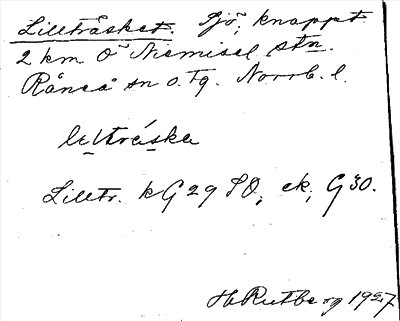 Lillträsket. Sjö, knappt
2 km Ö Niemisel stn.
Råneå sn o. tg. Norrb. l.
lıllträska
Lilltr. kG 29 SO, ek, G 30.
H. Rutberg 1927